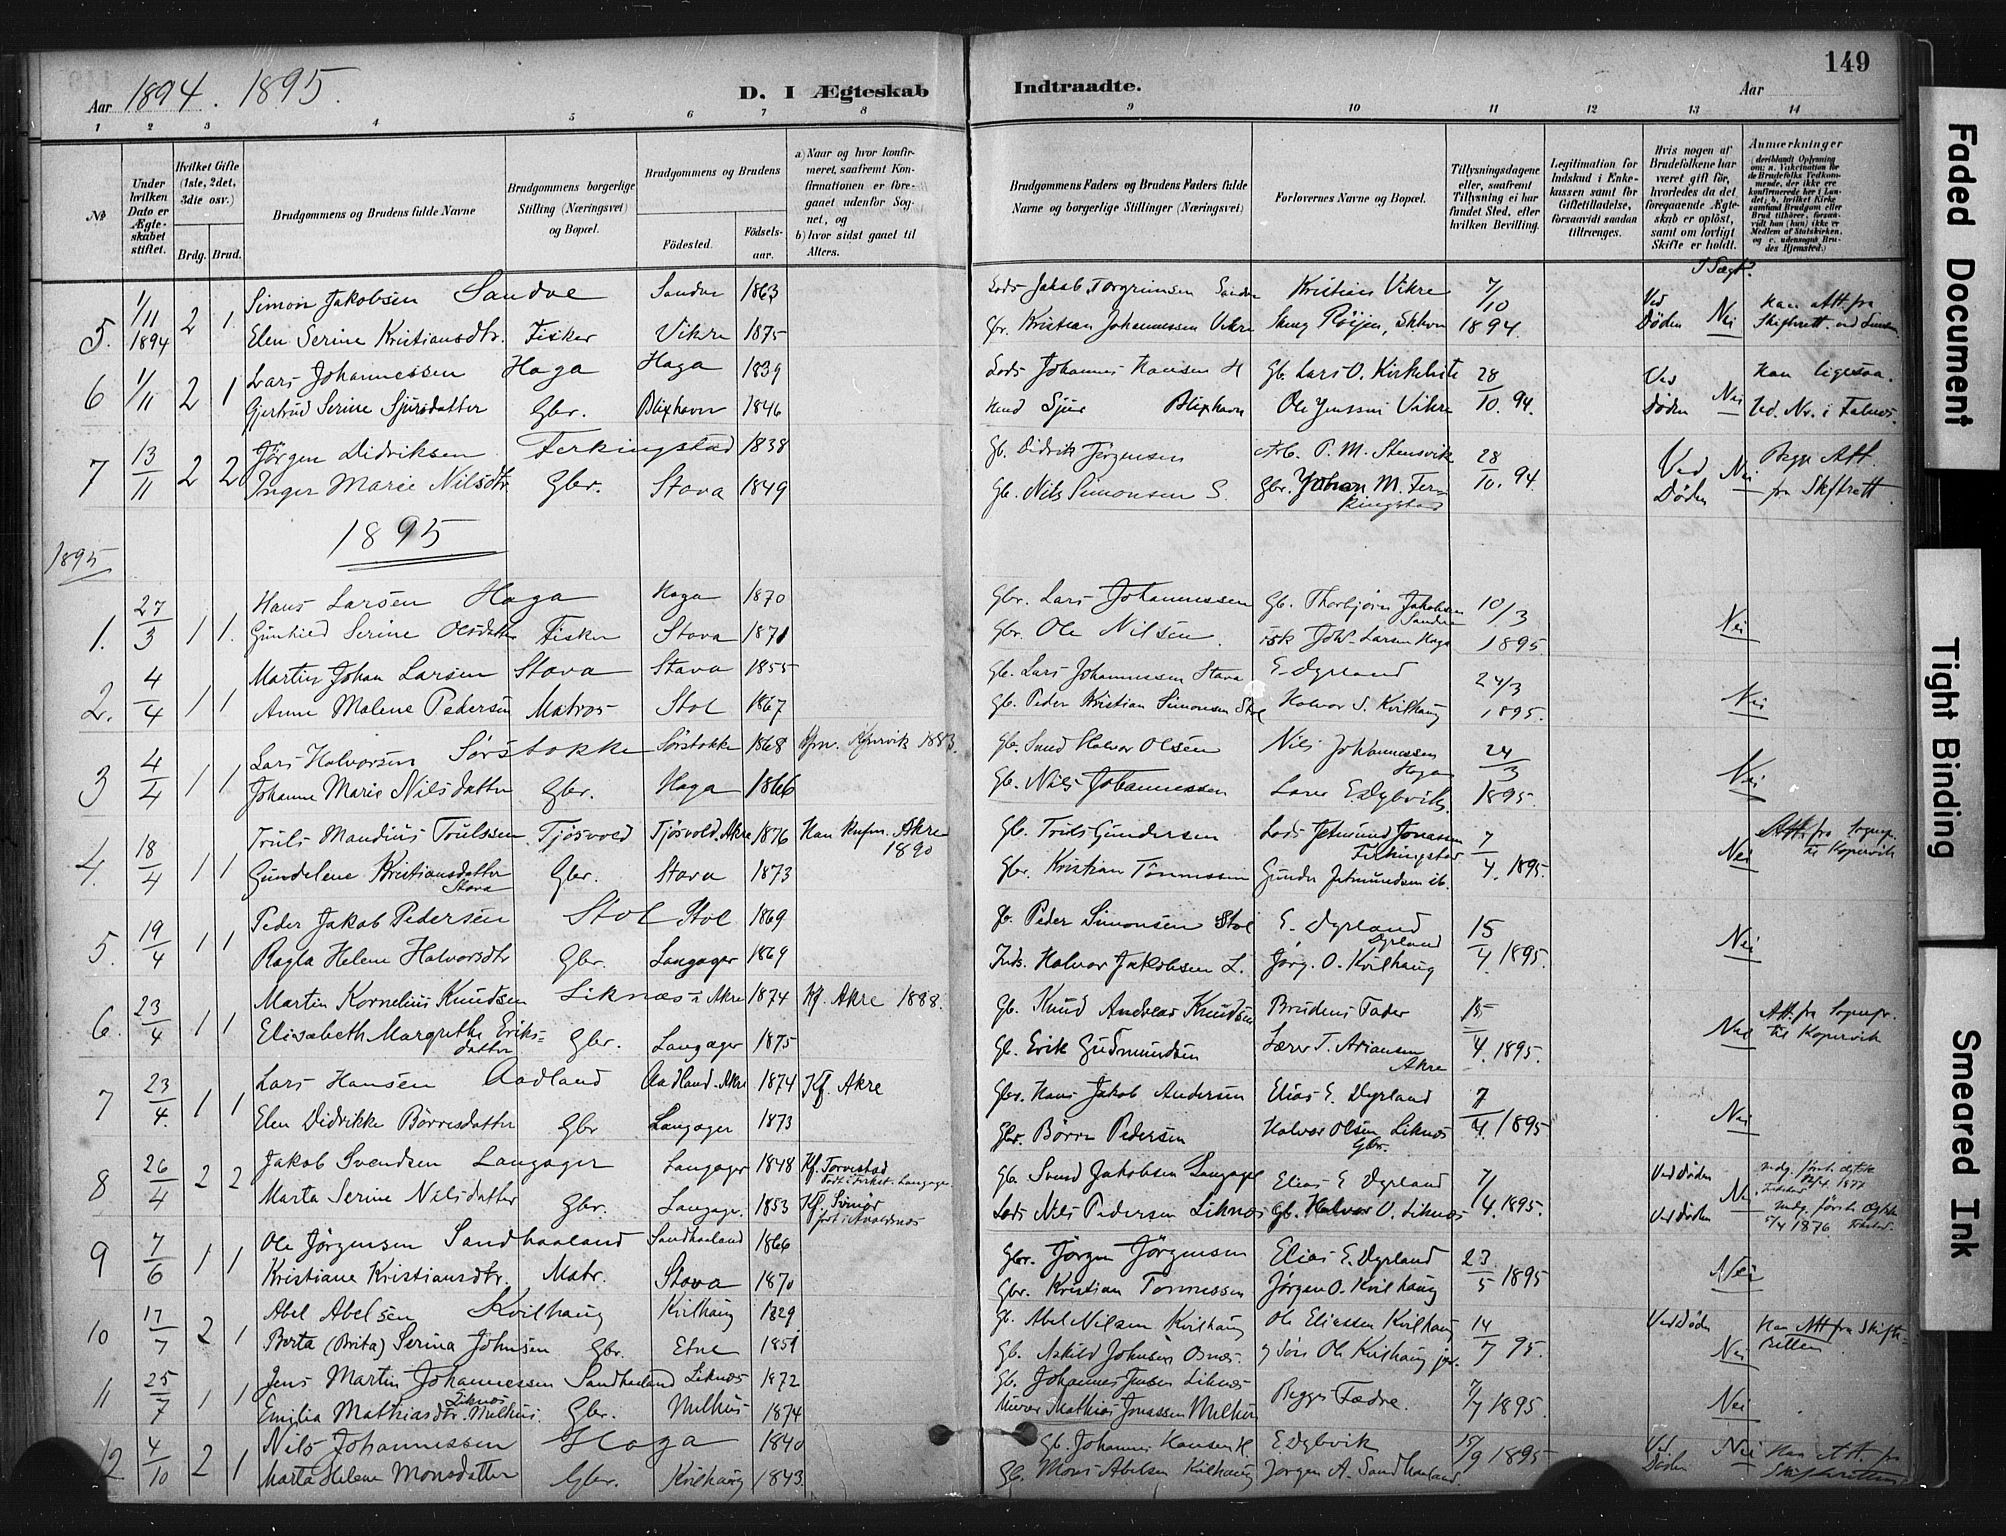 149
Aar 1894. 1895.
D. I Ægteskab Indtraadte.
Aar
1 2 3 4 5 6 7 8 9 10 11 12 13 14
№
Under hvilken Dato er Ægteskabet stiftet.
Hvilket Gifte (1ste, 2det, 3die osv.)
Brdg. Brud.
Brudgommens og Brudens fulde Navne
Brudgommens borgerlige Stilling (Næringsvei) og Bopæl.
Brudgommens og Brudens
Fødested. Fødsels-aar.
a) Naar og hvor konfirmeret, saafremt Konfirmationen er foregaaet udenfor Sognet, og
b) hvor sidst gaaet til Alters.
Brudgommens Faders og Brudens Faders fulde Navne og borgerlige Stillinger (Næringsvei)
Forlovernes Navne og Bopæl.
Tillysningsdagene eller, saafremt Tillysning ei har fundet Sted, efter hvilken Bevilling.
Legitimation for Indskud i Enkekassen samt for Giftetilladelse, forsaavidt saadan tiltrænges.
Hvis nogen af Brudefolkene har været gift før, hvorledes da det foregaaende Ægteskab er opløst, samt om lovligt Skifte er holdt.
Anmærkninger
5. 1/11 1894 2 1 Simon Jakobsen Sandve Sandve 1863 Lods Jakob Torgrimsen Sandve Kristian Vikre 7/10 Ved
Elen Serine Kristiansdtr. Fisker Vikre 1875 Kristian Johannessen Vikre 1894. Døden Nei
6 1/11 2 1 Lars Johannessen Haga Haga 1839 Lods Johannes Hansen H Gb. Lars O. Kirkeleite 28 Ved Han ligesaa.
Gjertrud Serine Sjursdatter Gbr. Blixhavn 1846 Sjur Blixhavn Ole Jenssen Vikre 10. 94. Døden Nei
7 13/11 2 2 Jørgen Didriksen Ferkingstad 1838 Gb. Didrik Jørgensen P. M. Stensvik 28 Ved Begge Att.
Inger Marie Nilsdtr Gbr. Stava 1849 Gb. Nils Simonsen S. Gbr. Johan M. Fer- 10. 94. Døden Nei fra Skiftrett.
kingstad
1895
1895
1. 27/3 1 1. Hans Larsen Haga Haga 1870 Gbr. Lars Johannessen Gb. Thorbjørn Jakobsen Sandve 10/3
Gunhild Serine Olsdatter Fisker Stava 1871 Gbr. Ole Nilsen. Joh. Larsen Haga 1895. Nei
2. 4/4 1 1 Martin Johan Larsen Stava Stava 1855 Gb. Lars Johannessen Stava E. Dyrland 24/3
Anne Malene Pedersen Matros Stol 1867 Gb. Peder Kristian Simonsen Stol Halvor S. Kvilhaug 1895. Nei
3 4/4 1 1 Lars Halvorsen Sørstokke Sørstokke 1868 Kopervik 1883. Gb. Halvor Olsen Nils Johannessen Haga 24/3
Johanne Marie Nilsdatter Gbr. Haga 1866 Gb. Nils Johannessen 1895. Nei
4. 18/4 1 1 Truls Mandius Trulssen Tjøsvold Tjøsvold. Akre 1876 Han knfm. Akre 1890 Gb. Truls Gundersen Lods Jetmund Jonassen Ferkingstad 7 Att. fra Sognepr.
Gundelene Kristiansdatter Stava Gbr. Stava 1873 Gbr. Kristian Tønnessen Gunder Jetmundsen ib. 4. 1895. Nei til Kopervik
5. 19/4 1 1 Peder Jakob Pedersen Stol Stol 1869 Gb. Peder Simonsen Stol E. Dyrland Dyrland 15
Ragla Helene Halvorsdtr Gbr. Langager 1869 Inds. Halvor Jakobsen L. Jørg. O. Kvilhaug 4. 1895. Nei
6. 23/4 1 1 Martin Kornelius Knudsen Liknæs i Akre 1874 Kf. Akre 1888. Gb. Knud Andreas Knudsen Brudens Fader 15 Att. fra Sognepr.
Elisabeth Margrethe Eriks-datter Gbr. Langager 1875 Gb. Erik Gudmundsen Lærer T. Ariansen Akre 4. 1895. Nei til Kopervik
7 23/4. 1 1 Lars Hansen Aadland Aadland. Akre 1874 Kf. Akre Gbr. Hans Jakob Andersen Elias E. Dyrland 7
Elen Didrikke Børresdatter Gbr Langager 1873 Gbr. Børre Pedersen Halvor Olsen Liknes Gbr. 4. 1895 Nei
8 26/4 2 2 Jakob Svendsen Langager Langager 1848 Kf. Torvestad Gb. Svend Jakobsen Langager Elias E Dyrland 7/ Ved Døden
Marta Serine Nilsdatter Gbr. Langager. 1853 Lods Nils Pedersen Liknes Gb. Halvor O. Liknes 4. 1895. Nei Ved Døden 1876
9 7/6 1 1 Ole Jørgensen Sandhaaland Sandhaaland 1866 Gbr. Jörgen Jörgensen Elias E. Dyrland 23
Kristiane Kristiansdtr. Matr. Stava 1870 Gbr. Kristian Tønnessen Jørgen O. Kvilhaug 5 1895 Nei
10 17/7 2 1 Abel Abelsen Kvilhaug Kvilhaug 1829 Gb. Abel Nilsen Kvilhaug Ole Eliassen Kvilhaug 14 Ved Døden Han Att fra Skifte-
Berta (Brita) Serina Johnsen Gbr. Etne 1859 Gb. Askild Johnsen Osnes. Ole Kvilhaug 7 95. Nei retten
11 25/7 1 1 Jens Martin Johannessen Sandhaaland Liknes 1872 Gb. Johannes Jensen Liknes Begges Fædre. 7/
Emilia Mathiasdtr. Melhus. Liknes Gbr. Melhus 1874 Murer Mathias Jonassen Melhus 7 1895. Nei
12 4/10 2 1 Nils Johannessen Haga 1840 Gb. Johannes Hansen H E. Dybvik 15/9 1895 Ved Nei Han Att. fra
Marta Helene Monsdatter Gbr. Kvilhaug 1843. Gb. Mons Abelsen Kvilhaug Jørgen A. Sandhaaland. Døden Skifteretten
Faded Document
Tight Binding
Smeared Ink